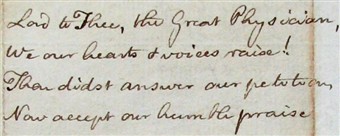 Lord to Thee, the Great Physician,
We our hearts & voices raise!
Thou didst answer our petition,
Now accept our humble praise